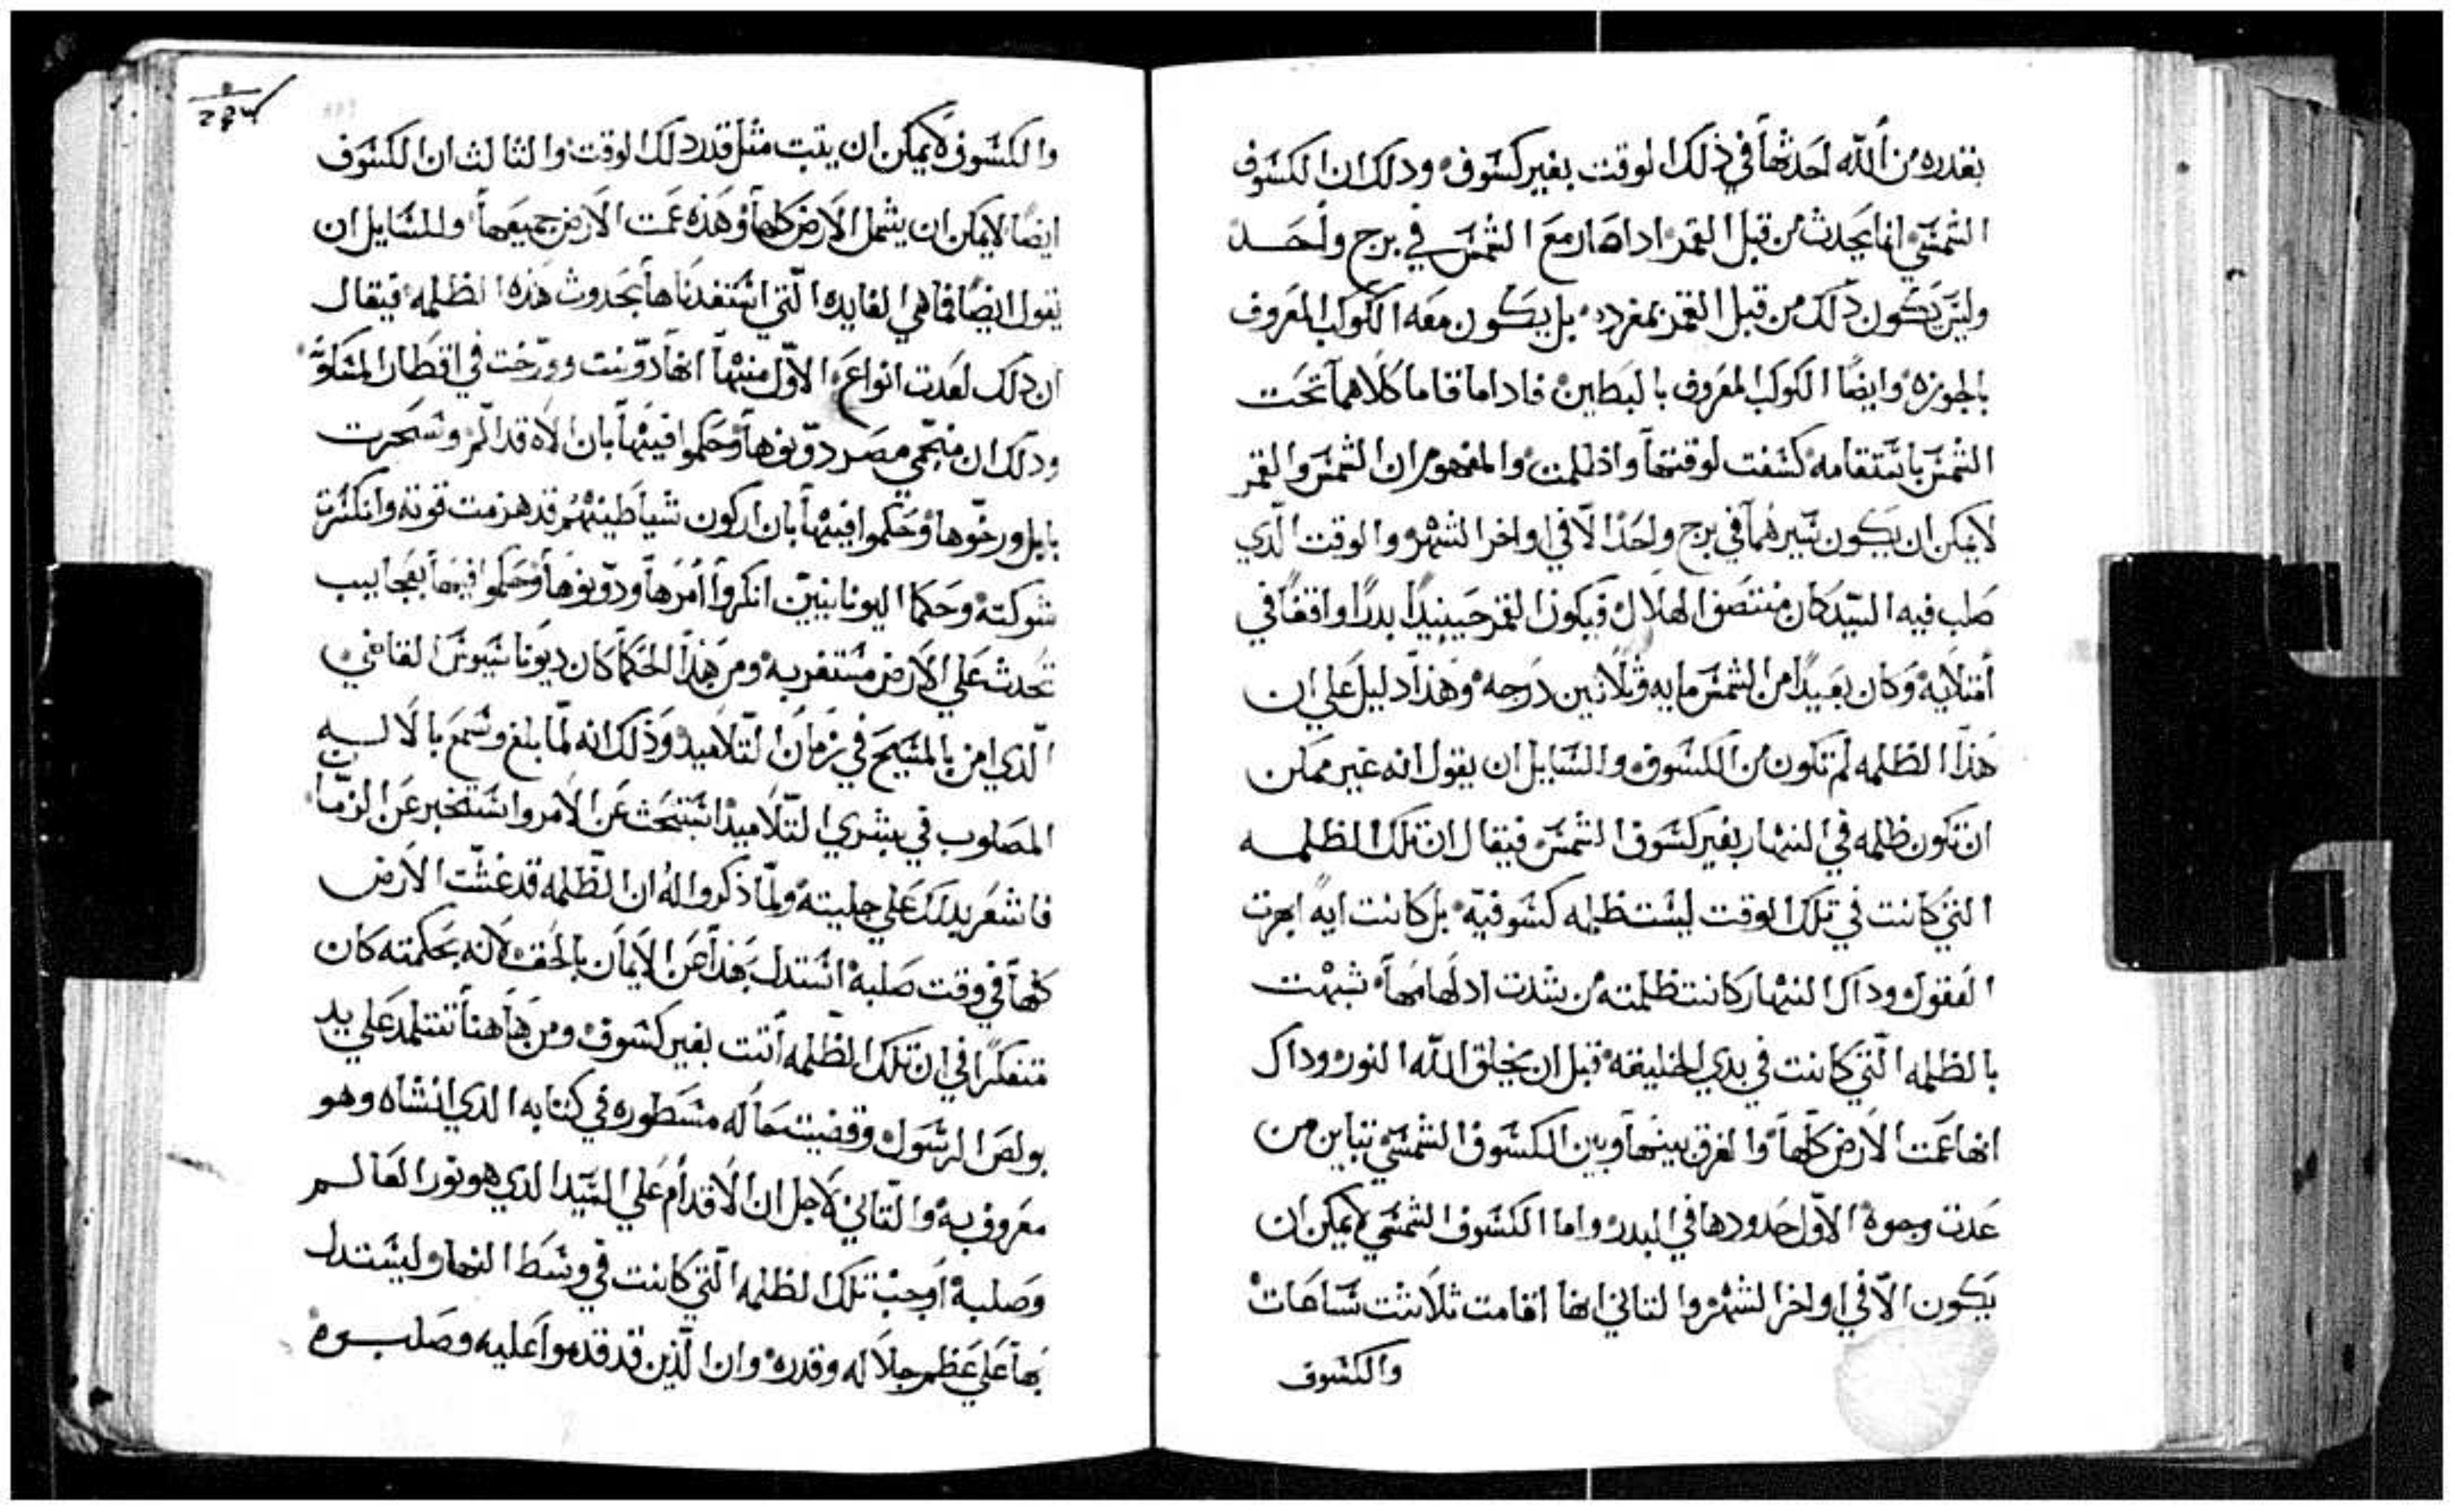 بقدره من الله احدثها في ذلك الوقت بغير كسوف ودلك ان الكسوف
الشمسي انما يحدث من قبل القمر اداصار مع الشمس في برج واحد
وليس يكون ذلك من قبل القمر بمفرده بل يكون معه الكوكب المعروف
بالجوزه وايضًا الكوكب المعروف بالبطين فاداما قاما كلاهما تحت
الشمس باستقامه كسفت لوقتها واظلمت والمفهوم ان الشمس والقمر
لايمكن ان يكون سيرهما في برج واحد الّا في اواخر الشهر والوقت الّدي
صلب فيه السيّد كان منتصف الهلال فيكون القمر حينيدًا بدرًا واقفًا في
امتلايه وكان بعيدًا من الشمس مايه وثلاثين درجه وهذا دليل علي ان
هذا الظلمه لم تكون من الكسوف والسايل ان يقول انه غير ممكن
ان تكون ظلمه في النهار بغير كسوف الشمس فيقال ان تلك الظلمه
التي كانت في تلك الوقت ليست ظلمه كسوفيّه بل كانت ايه ابهرت
العقول وداك النهار كانت ظلمته من شدت ادلهامها شبهت
بالظلمه الّتي كانت في بدي الخليقه قبل ان يخلق اللّه النور وداك
انها عمت الارض كلّها والفرق بينها وبين الكسوف الشمسي تباين من
عدت وجوه الاوّل حدودها في البدر واما الكسوف الشمسي لايمكن ان
يكون الّا في اواخر الشهر والتاني انها اقامت ثلاثت ساعات
والكسوف
والكسوف لايمكن ان يتبت مثل قدر دلك الوقت والتالث ان الكسوف
ايضًا لايمكن ان يشمل الارض كلها وهذه عمت الارض جميعها وللسايل ان
يقول ايضًا فما هي الفايده الّتي استفدناها بحدوث هذه الظلمه فيقال
ان دلك لعدت انواع الاوّل منها انها دوّنت وورّخت في اقطار المسكونه
ودلك ان منجّمي مصر دوّنوها وحكموا فيها بان الاه قد الّم وسحرت
بابل ورخّوها وحكموا فيها بان اركون شياطينهم قد هزمت قوته وانكسرت
شوكته وحكما اليونانيين انكروا امرها ودوّنوها وحكموا فيها بعجايب
تحدث علي الارض مستغربه ومن هذا الحكما كان ديوناسيوس القاضي
الّدي امن بالمسيح في زمان التلاميد وذلك انه لمّا بلغ وسمع بالاله
المصلوب في بشري التّلاميد استبحث عن الامر واستخبر عن الزمان
فاشعر بدلك علي جليته ولمّا ذكروا له ان الظلمه قد غشّت الارض
كلها في وقت صلبه استدل بهذا عن الايمان بالحق لانه بحكمته كان
متفكرًا في ان تلك الظلمه أتت بغير كسوف ومن هاهنا تتلمد علي يد
بولص الرسول وقضيت حاله مسطوره في كتابه الدي انشاه وهو
معروف به والتاني لاجل ان الاقدام علي السيّد الدي هو نور العالم
وصلبه اوجبت تلك الظلمه الّتي كانت في وسط النهار وليستدل
بها علي عظم جلاله وقدره وان الّذين قد قدموا عليه وصلبوه